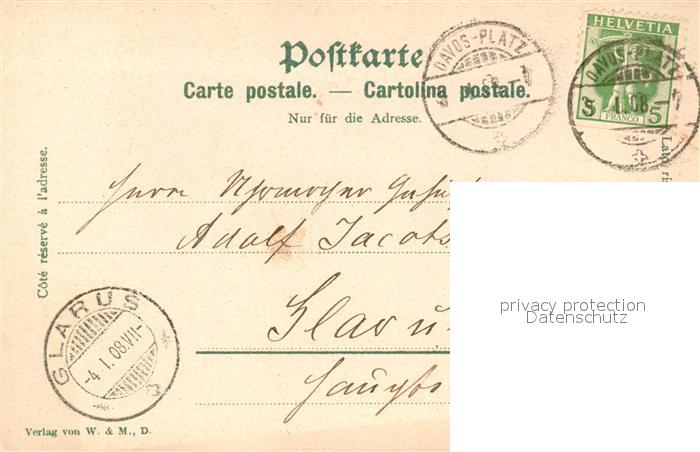 Postkarte
Carte postale. — Cartolina postale.
Nur für die Adresse.
DAVOS-PLATZ
HELVETIA
DAVOS-PLATZ
I.08.
5 FRANCO 5
Côté réservé à l'adresse.
Lato ri
Herrn
Adolf Jacobs
Glaru
GLARUS
-4.I.08.VII-
privacy protection
Datenschutz
Verlag von W. & M., D.